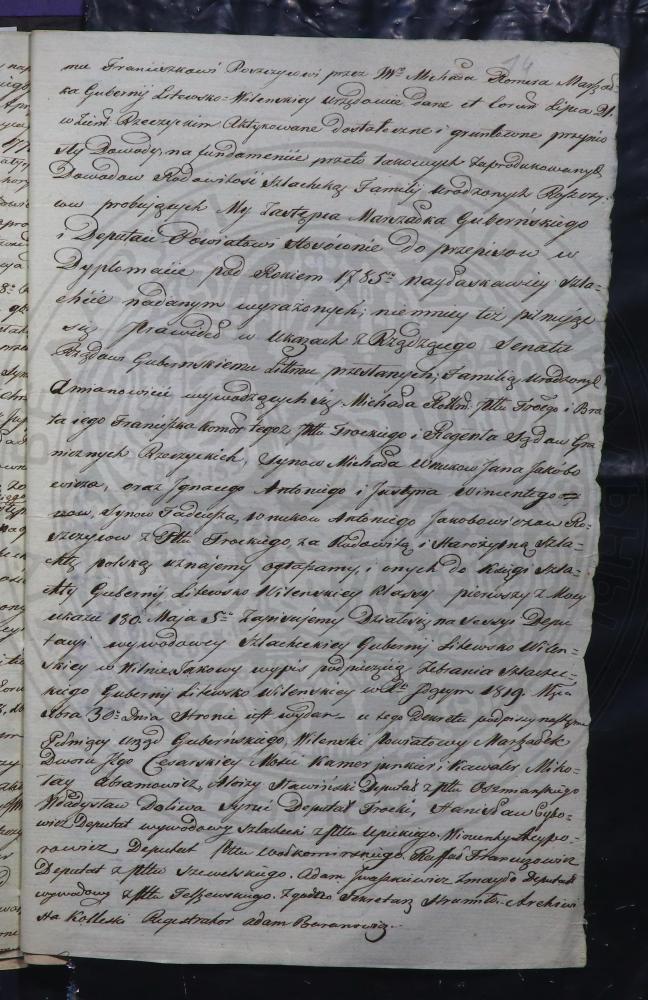 14
mu Franciszkowi Roszczycowi przez Wo Michała Romera Marszał=
ka Gubernij Litewsko-Wilenskiey urzędownie dane et eorum Lipca 21.
w Ziem. Rzeczyckim Aktykowane dostateczne i gruntowne przynio
sły Dowody; na fundamencie przeto takowych zaprodukowanych
Dowodow Rodowitość Szlachecką Familij urodzonych Roszczy=
cow probujących My Zastępca Marszałka Gubernskiego
i Deputaci Powiatowi stosownie do przepisow w
Dyplomacie pod Rokiem 1785m naylaskawiey Szla=
chcie nadanym wyrażonych; niemniey też pilnując
się prawideł w Ukazach z Rządzącego Senatu
Rządowi Gubernskiemu Littmu przesłanych; Familią urodzonych
a mianowicie wywodzących się Michała Rottm. Pttu Trockgo i Bra
ta iego Franciszka Komor. tegoż Pttu Trockiego i Regenta Sądow Gra
nicznych Rzeczyckich, Synow Michała wnukow Jana Jakubo
wicza, oraz Ignacego Antoniego i Justyna Wincentego
now, Synow Tadeusza, wnukow Antoniego Jakobowiczow Ro=
szczycow z Pttu Trockiego za Rodowitą i Starożytną Szla=
chtę polską uznajemy ogłaszamy, i onych do Xięgi Szla=
chty Gubernij Litewsko Wilenskiey Klassy pierwszey z Mocy
ukazu Maja Zapisujemy Działo się na Sessyi Depu
tacyi wywodowey Szlacheckiey Gubernij Litewsko Wilen=
skiey w Wilnie. Jakowy wypis pod pieczęcią Zebrania Szlachec=
kiego Gubernij Litewsko Wilenskiey w Roku 1819. Mca
30o Dnia Stronie iest wydan.- u tego Dekretu podpisy następne
Pełniący urząd Gubernskiego, Wilenski Powiatowy Marszałek
Dworu Jego Cesarskiey Mości Kamer junkier i Kawaler Miko=
łay Abramowicz, Aloizy Sławiński Deputat z Pttu Oszmianskiego
Władysław Doliwa Syruć Deputat Trocki, Stanisław
wicz Deputat wywodowy Szlachecki z Pttu Upitskiego, Wincenty
rowicz Deputat Pttu Wiłkomirskiego. Raffał Francuzowicz
Deputat z Pttu Szawelskiego. Adam Iwaszkiewicz Deputat
wywodowy z Pttu Telszewskiego. Zgodno Sekretarz Archiwi
sta Kolleski Registrator Adam Baranowicz.-